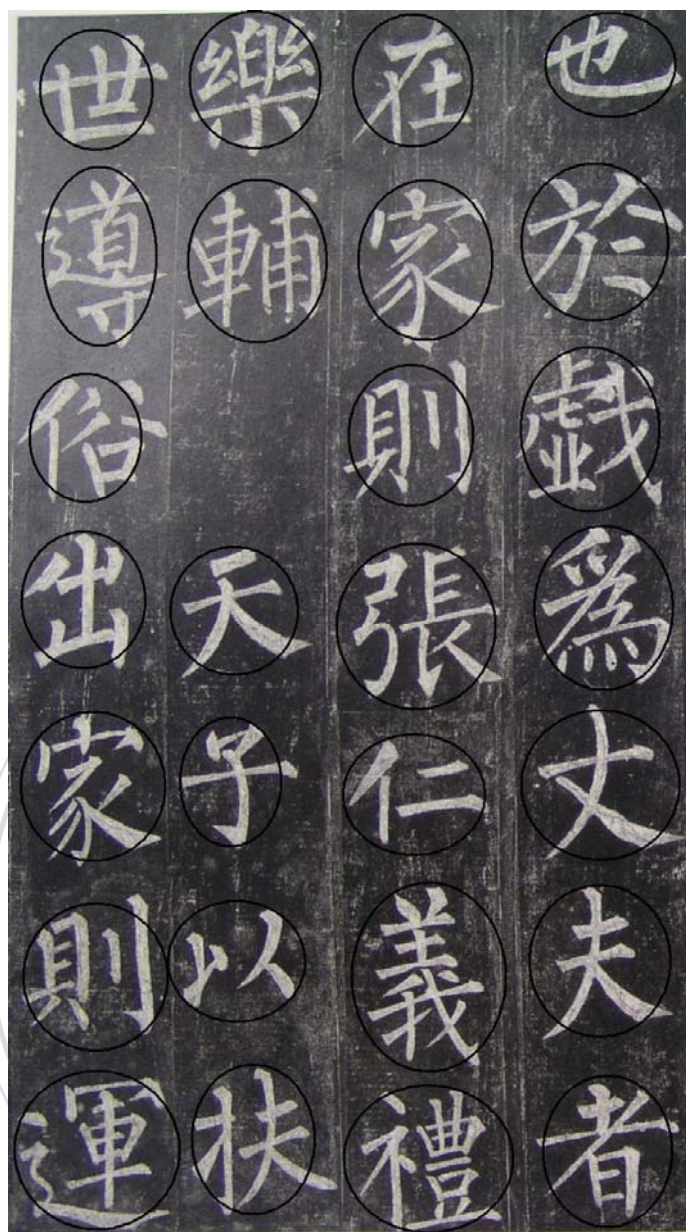 也於戲為丈夫者
在家則張仁義禮
樂輔天子以扶
世導俗出家則運